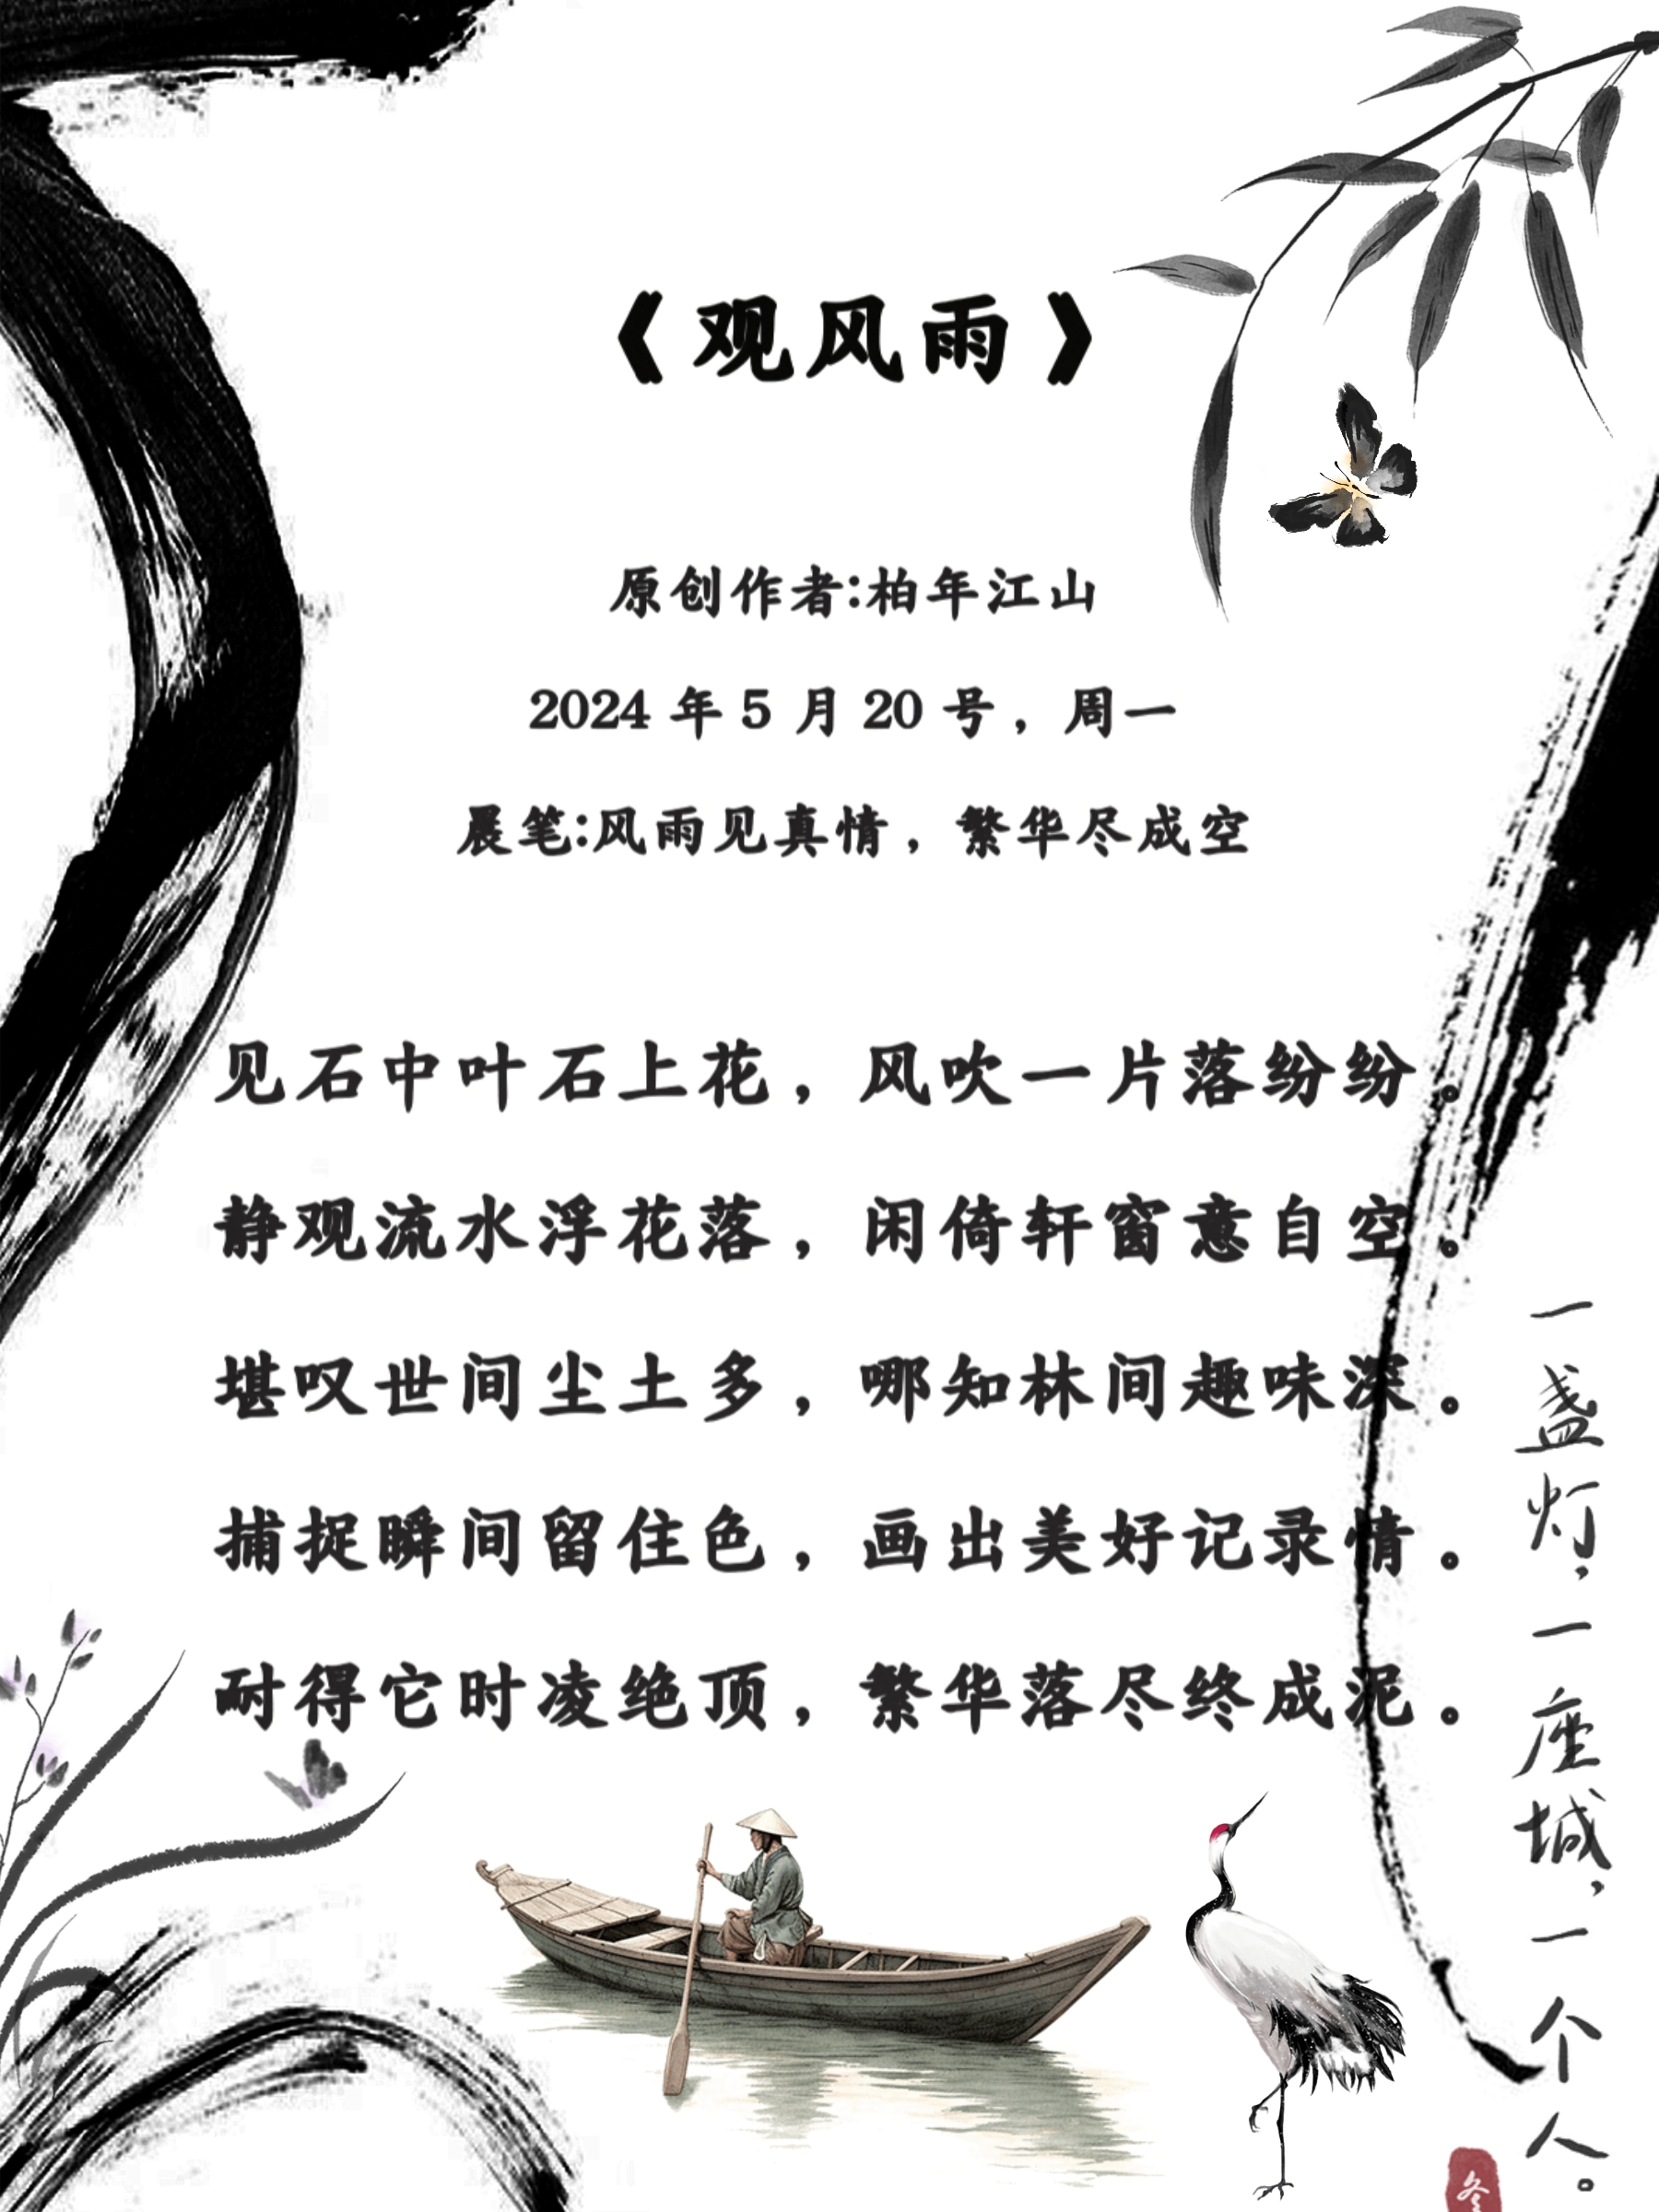 《观风雨》
原创作者:柏年江山
2024年5月20号，周一
晨笔:风雨见真情，繁华尽成空
见石中叶石上花，风吹一片落纷纷。
静观流水浮花落，闲倚轩窗意自空。
堪叹世间尘土多，哪知林间趣味深。
捕捉瞬间留住色，画出美好记录情。
耐得它时凌绝顶，繁华落尽终成泥。
一盏灯，一座城，一个人。
冬